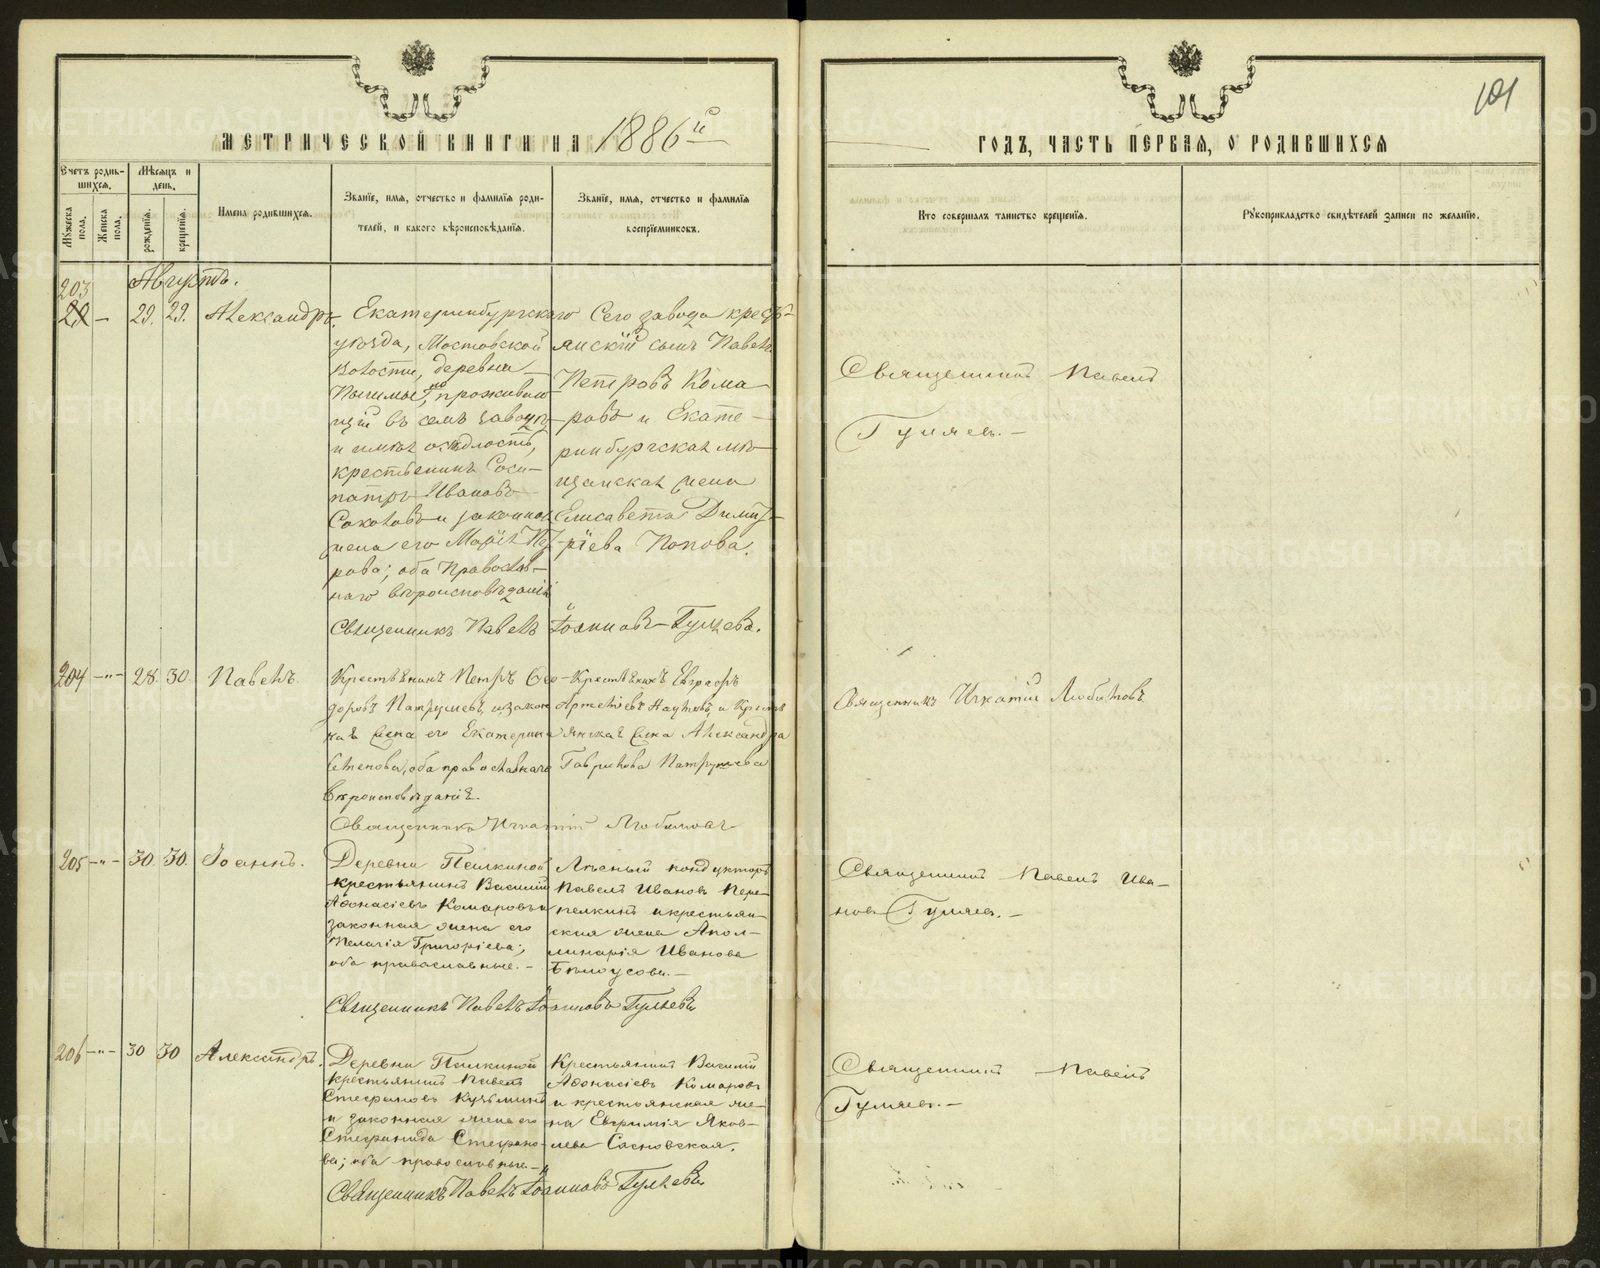 МЕТРИЧЕСКОЙ КНИГИ НА 1886й
ГОДЪ, ЧАСТЬ ПЕРВАЯ, О РОДИВШИХСЯ
101
Счетъ родив-
шихся.
Мѣсяцъ и
день.
Мужеска
пола.
Женска
пола.
рожденія.
крещенія.
Имена родившихся.
Званіе, имя, отчество и фамилія роди-
телей, и какого вѣроисповѣданія.
Званіе, имя, отчество и фамилія
воспріемниковъ.
Кто совершалъ таинство крещенія.
Рукоприкладство свидѣтелей записи по желанію.
Августъ.
203
29. 29. Александръ.
Екатеринбургскаго
уѣзда, Мостовской
волости, деревни
проживаю
щій въ семъ заводѣ
и имѣя осѣдлость,
крестьянинъ Соси-
патръ Ивановъ
Соколовъ и законная
жена его Марія Пет-
рова; оба Православ-
наго вѣроисповѣданія
Сего завода кресть-
янскій сынъ Павелъ
Петровъ Кома-
ровъ и Екате-
ринбургская мѣ-
щанская жена
Елисавета Димит-
ріева Попова.
Священникъ Павелъ Іоанновъ Гуляевъ.
Священникъ Павелъ
Гуляевъ.
204 -"- 28 30 Павелъ.
Крестьянинъ Петръ Ѳео-
доровъ Патрушевъ, и закон
ная жена его Екатерина
Семенова, оба православнаго
вѣроисповѣданія.
Крестьянинъ Евграфъ
и Кресть
янская жена Александра
Гаврилова Патрушева
Священникъ Игнатій Любимовъ
Священникъ Игнатій Любимовъ
205 -"- 30. 30. Іоаннъ.
Деревни Палкиной
крестьянинъ Василій
Аѳонасіевъ Комаровъ и
законная жена его
Пелагія Григоріева;
оба православные.
Лѣсный кондукторъ
Павелъ Ивановъ Пере-
пелкинъ и крестьян-
ская жена Апол-
линарія Иванова
Бѣлоусова.
Священникъ Павелъ Іоанновъ Гуляевъ
Священникъ Павелъ Ива-
новъ Гуляевъ.
206 -"- 30 30 Александръ.
Деревни Палкиной
крестьянинъ Павелъ
Стефановъ Кузьминъ
и законная жена его
Стефанида Стефано-
ва; оба православные.
Крестьянинъ Василій
Аѳонасіевъ Комаровъ
и крестьянская же-
на Евфимія Яков-
лева Сосновская.
Священникъ Павелъ Іоанновъ Гуляевъ
Священникъ Павелъ
Гуляевъ.
METRIKI.GASO-URAL.RU